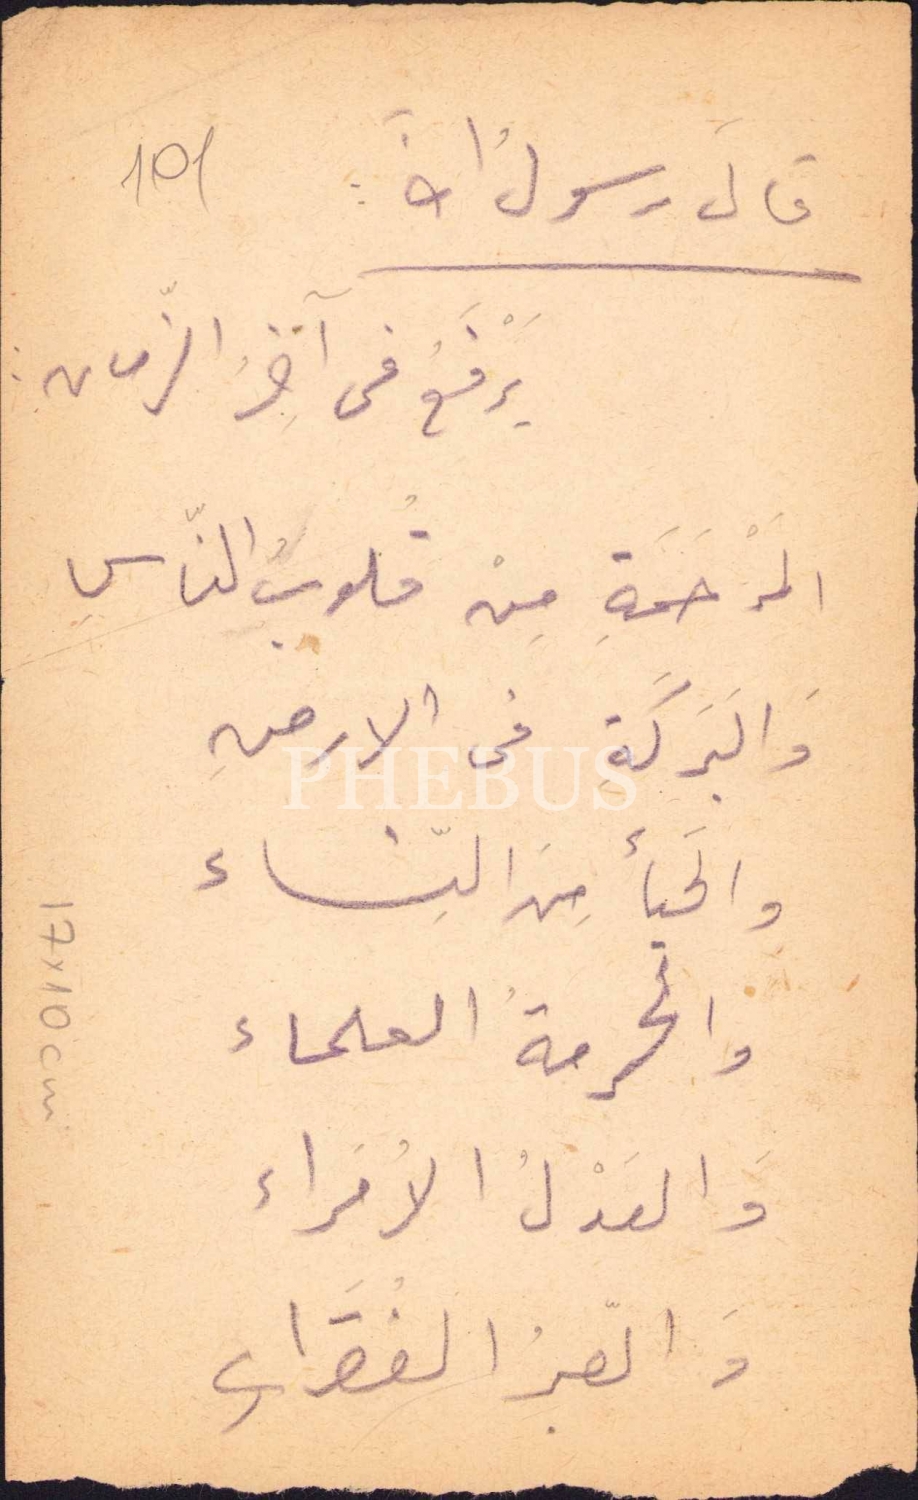 101
قَالَ رسولُ اخَ :
يَرْفَعُ فى آخِرُ الزّمان :
المَرْحَمَةِ مِنْ قُلوبُ النّاسِ
وَالبَرَكَةِ فى الارضِ
والحَيأ مِنَ النِّساء
والحرمةُ العلماء
وَالعَدْلُ الأُمَراء
وَالصّبرُ الفُقَراءِ
17x10 cm
PHEBUS